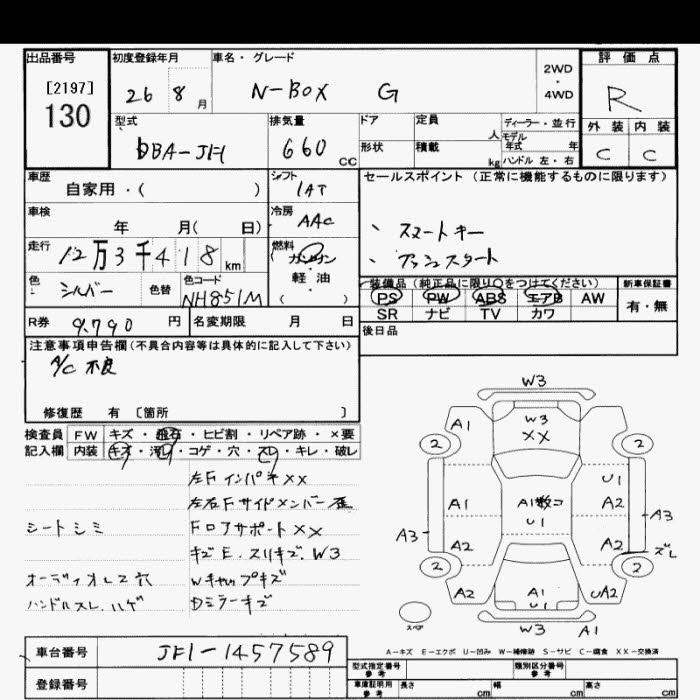 出品番号
[2197]
130
初度登録年月
26 8 月
車名・グレード
N-BOX G
2WD
・
4WD
評価点
R
外装 内装
C C
型式
DBA-JF1
排気量
660 CC
ドア
形状
定員
人
積載
kg
ディーラー・並行
モデル年式 年
ハンドル 左・右
車歴
自家用・( )
シフト
IAT
車検
年 月( 日)
冷房
AAC
走行
12万3千418 km
燃料
ガソリン
・
軽油
( )
色
シルバー
色替
色コード
NH851M
セールスポイント(正常に機能するものに限ります)
、スマートキー
、プッシュスタート
装備品(純正品に限り○をつけてください)
PS PW ABS エアB AW
SR ナビ TV カワ
新車保証書
有・無
R券 9,790 円
名変期限 月 日
後日品
注意事項申告欄(不具合内容等は具体的に記入して下さい)
A/C 不良
修復歴 有 〔箇所 〕
検査員
記入欄
FW キズ・飛石・ヒビ割・リペア跡・×要
内装 キズ・汚レ・コゲ・穴・スレ・キレ・破レ
左Fインパネ××
左右Fサイドメンバー歪
シートシミ
Fロアサポート××
キズE.スリキズ.W3
オーディオレス穴
Wキャップキズ
ハンドルスレ.ハゲ
Dミラーキズ
W3
A1
W3
××
2
2
U1
A1
A1数コ
U1
A2
A3
A3
A2
A2
ズレ
2
2
A2
A1
U1
UA2
スペア
W3
A1
A-キズ E-エクボ U-凹み W-補修跡 S-サビ C-腐食 XX-交換済
車台番号
JF1-1457589
登録番号
型式指定番号
参考
類別区分番号
参考
車庫証明用
参考
長さ cm
幅 cm
高さ cm